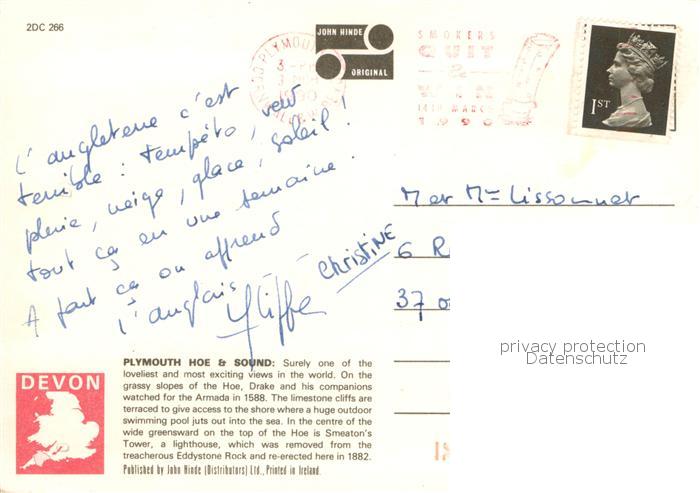 2DC 266
JOHN HINDE
ORIGINAL
PLYMOU
3-
1990
SMOKERS
QUIT
&
WIN
14TH MARCH
1990
1ST
L'angleterre c'est
terrible : tempéte, vent
pluie, neige, glace, soleil !
tout ça en une semaine.
A part ça on apprend
l'anglais
Christine
M et Mme Lissonnet
6 R
37 0
privacy protection
Datenschutz
DEVON
PLYMOUTH HOE & SOUND: Surely one of the
loveliest and most exciting views in the world. On the
grassy slopes of the Hoe, Drake and his companions
watched for the Armada in 1588. The limestone cliffs are
terraced to give access to the shore where a huge outdoor
swimming pool juts out into the sea. In the centre of the
wide greensward on the top of the Hoe is Smeaton's
Tower, a lighthouse, which was removed from the
treacherous Eddystone Rock and re-erected here in 1882.
Published by John Hinde (Distributors) Ltd., Printed in Ireland.